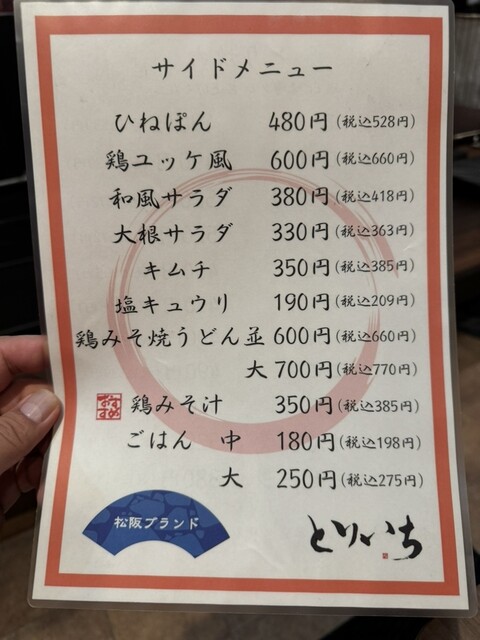 サイドメニュー
ひねぽん 480円(税込528円)
鶏ユッケ風 600円(税込660円)
和風サラダ 380円(税込418円)
大根サラダ 330円(税込363円)
キムチ 350円(税込385円)
塩キュウリ 190円(税込209円)
鶏みそ焼うどん並 600円(税込660円)
大 700円(税込770円)
おすすめ 鶏みそ汁 350円(税込385円)
ごはん 中 180円(税込198円)
大 250円(税込275円)
松阪ブランド
とりいち